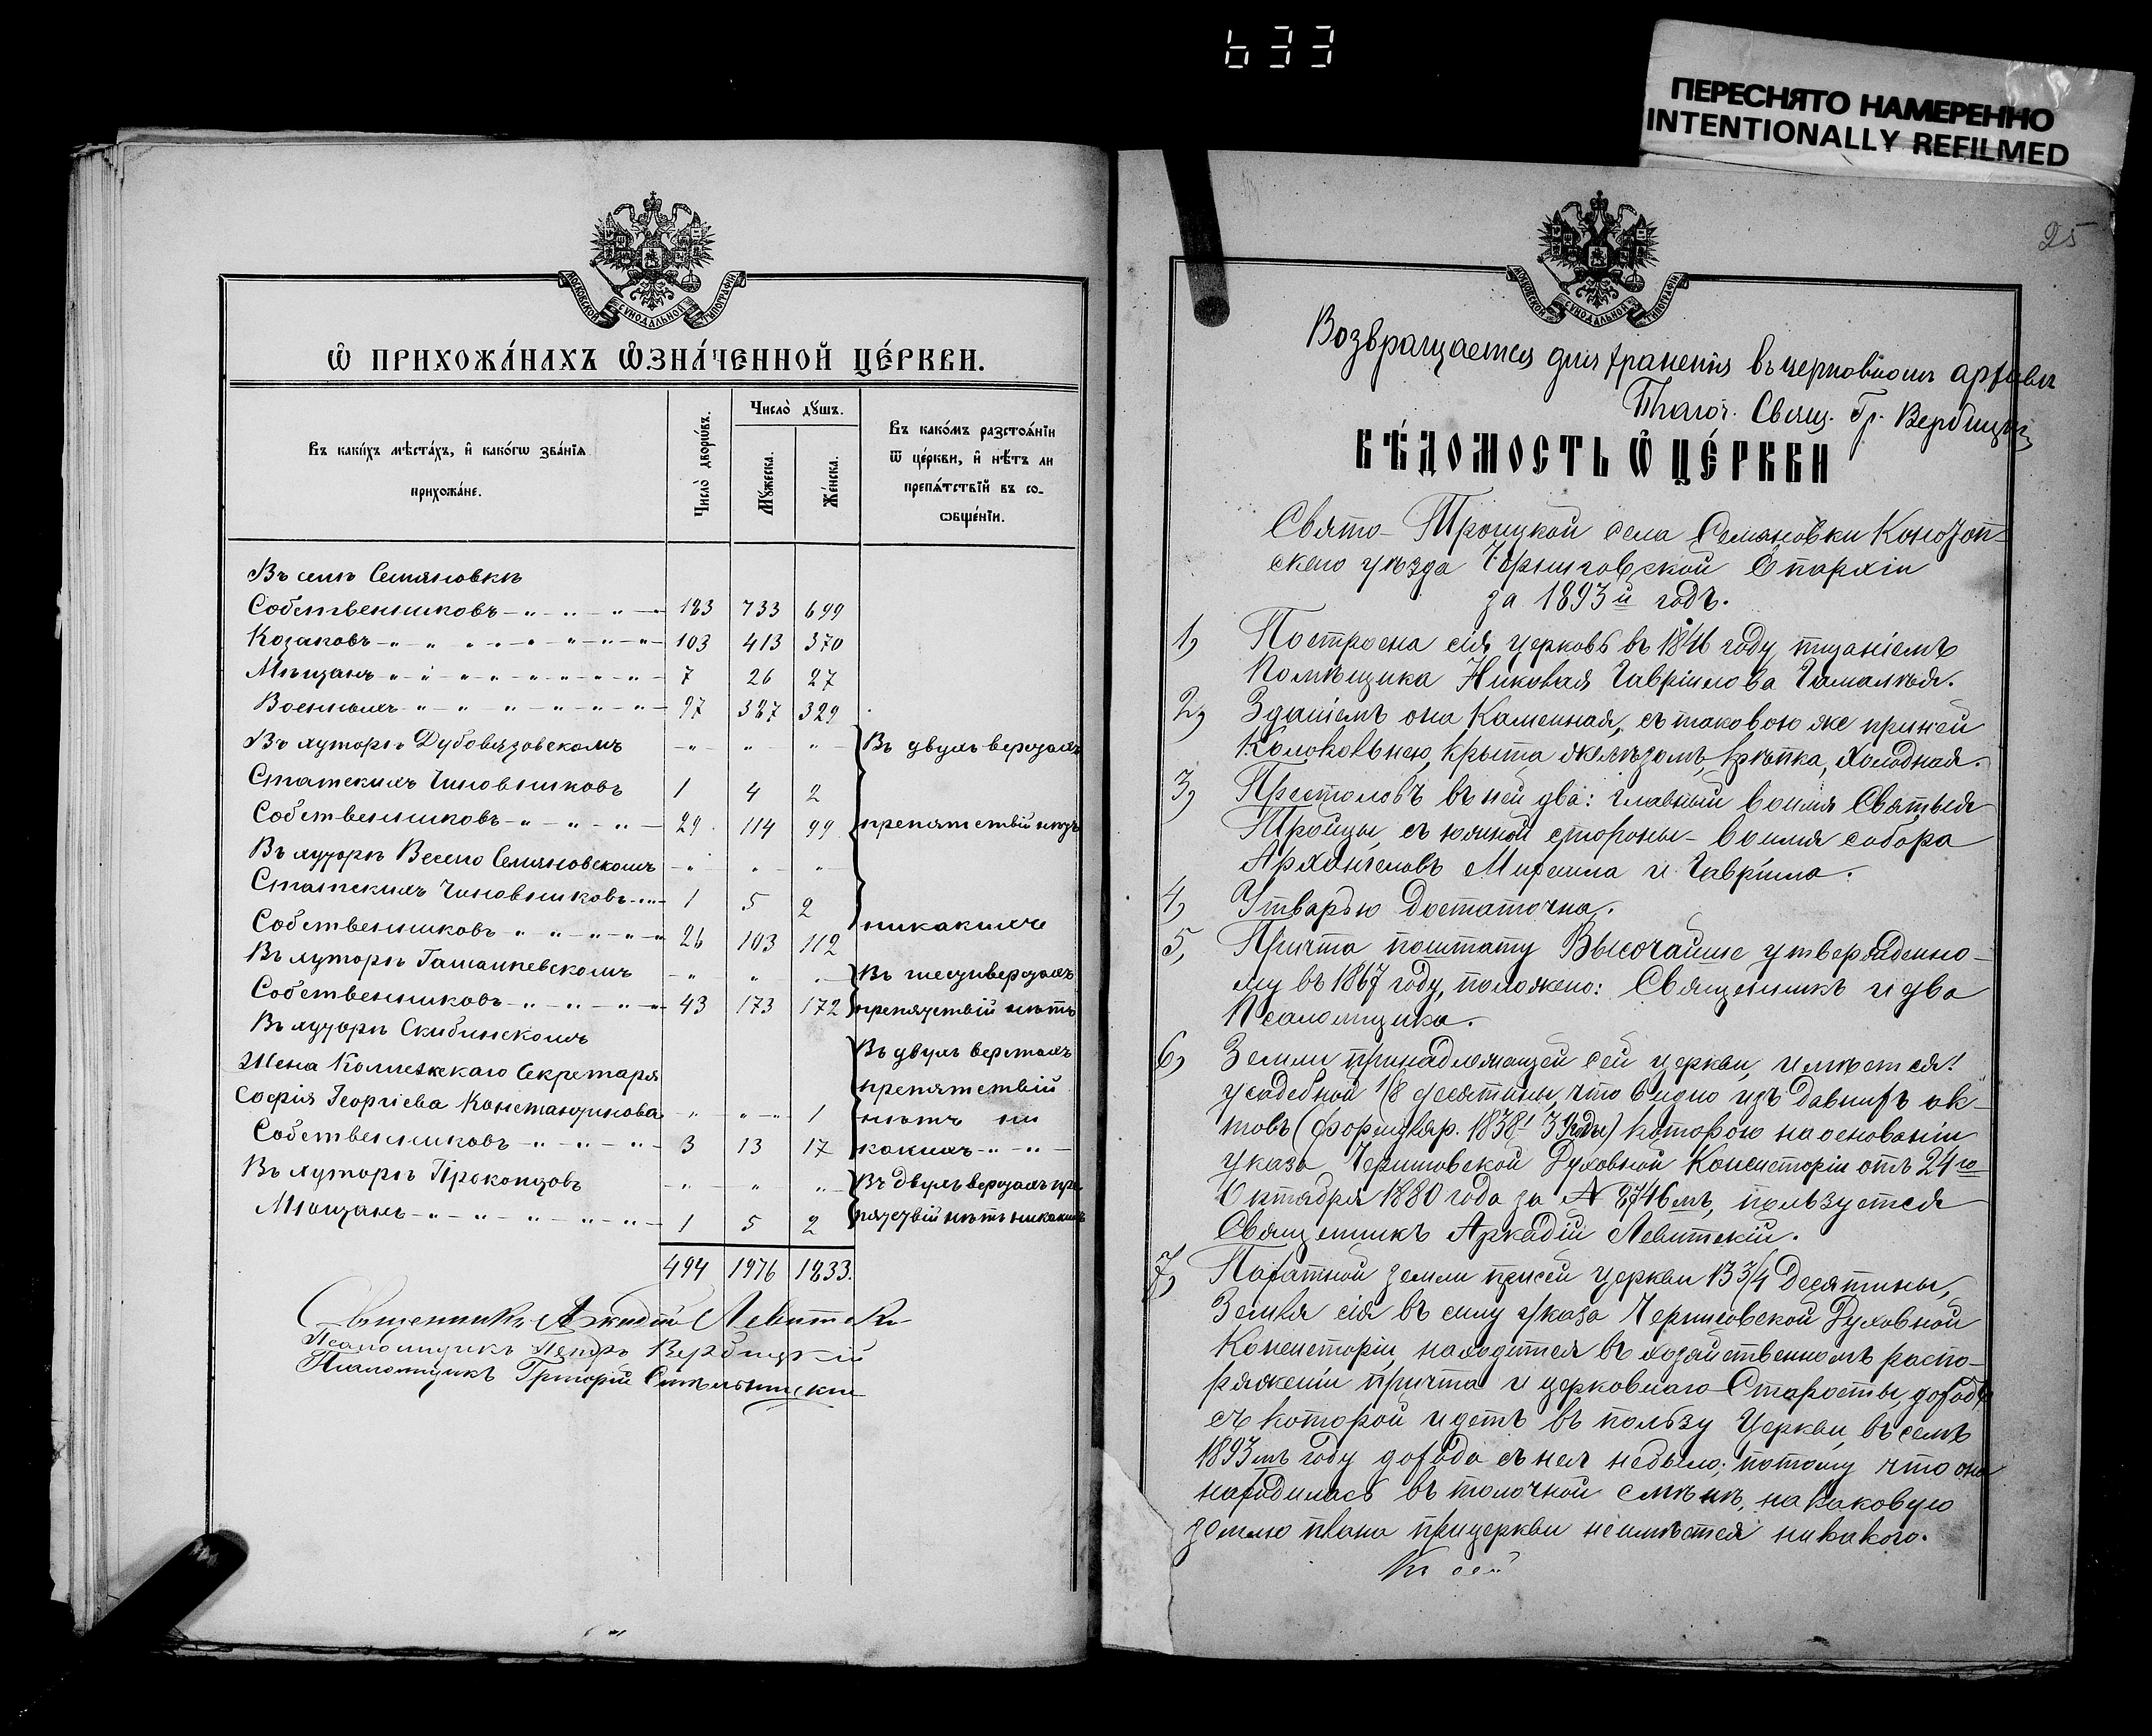 633
ПЕРЕСНЯТО НАМЕРЕННО
INTENTIONALLY REFILMED
МОСКОВСКОЙ СѴНОДАЛЬНОЙ ТИПОГРАФІИ
Ѡ ПРИХОЖА́НАХЪ Ѡ҆ЗНА́ЧЕННОЙ ЦЕ́РКВИ.
Въ каки́хъ мѣста́хъ, и҆ како́гѡ зва́нїѧ прихожа́не.
Число̀ дворѡ́въ.
Число̀ дꙋ́шъ.
Мꙋ́жеска.
Же́нска.
Въ како́мъ разстоѧ́нїи
ѿ це́ркви, и҆ нѣ́тъ ли
препѧ́тствїй въ со-
ѡбще́нїи.
Въ селѣ Семяновкѣ
Собственниковъ - „ - „ - „ - 183 733 699
Козаковъ - „ - „ - „ - 103 413 370
Мѣщанъ - „ - „ - „ - 7 26 27
Военныхъ - „ - „ - „ - 97 387 329
Въ хуторѣ Дубовязовскомъ - „ - „ - „ Въ двухъ верстахъ
Статскихъ Чиновниковъ 1 4 2
Собственниковъ - „ - „ - „ - 29 114 99 препятствій нѣтъ
Въ хуторѣ Весело Семяновскомъ - „ - „ - „
Статскихъ Чиновниковъ - „ - 1 5 2
никакихъ
Собственниковъ - „ - „ - „ - 26 103 112
Въ хуторѣ Гамалѣевскомъ - „ - „ - „ Въ шести верстахъ
Собственниковъ - „ - „ - „ - 43 173 172 препятствій нѣтъ
Въ хуторѣ Скибинскомъ
Въ двухъ верстахъ
Жена Коллежскаго Секретаря
препятствій
Софія Георгіева Константинова - „ - „ - 1 нѣтъ ни
Собственниковъ - „ - „ - „ - 3 13 17 какихъ - „ - „ -
Въ хуторѣ Прокопцовъ - „ - „ - „ Въ двухъ верстахъ пре
Мѣщанъ - „ - „ - „ - 1 5 2 пятствій нѣтъ никакихъ
494 1976 1833.
Священникъ Аркадій Левитскій
Псаломщикъ Петръ Вербицкій
Псаломщикъ Григорій
25
МОСКОВСКОЙ СѴНОДАЛЬНОЙ ТИПОГРАФІИ
Возвращается для храненія въ церковномъ архивѣ
Благоч. Свящ. Гр. Вербицкій
ВѢ́ДОМОСТЬ Ѡ ЦЕ́РКВИ
Свято-Троицкой села Семяновки Конотоп-
скаго уѣзда Черниговской Епархіи
за 1893й годъ.
1, Построена сія церковь въ 1846 году тщаніемъ
Помѣщика Николая Гавріилова Гамалѣя.
2, Зданіемъ она Каменная, съ таковою же при ней
Колокольнею, крыта желѣзомъ, крѣпка, холодная.
3, Престоловъ въ ней два: главный во имя Святыя
Тройцы, съ южной стороны - во имя собора
Архангеловъ Михаила и Гавріила.
4, Утварью достаточна.
5, Причта по штату Высочайше утвержденно-
му въ 1867 году, положено: Священникъ и два
Псаломщика.
6, Земли принадлежащей сей церкви, имѣется:
усадебной 1/8 десятины, что видно изъ давнихъ ак-
товъ (формуляр. 1838 39 годы) которою на основаніи
указа Черниговской Духовной Консисторіи отъ 24го
Октября 1880 года за № 8746мъ, пользуется
Священникъ Аркадій Левитскій.
7, Пахатной земли при сей церкви 13 3/4 Десятины,
Земля сія въ силу указа Черниговской Духовной
Консисторіи, находится въ хозяйственномъ распо-
ряженіи причта и церковнаго Старосты, доходъ
съ которой идетъ въ пользу Церкви, въ семъ
1893мъ году дохода съ нея небыло; потому что она
находилась въ толочной смѣнѣ, на каковую
землю плана при церкви неимѣется никакого.
Къ сей